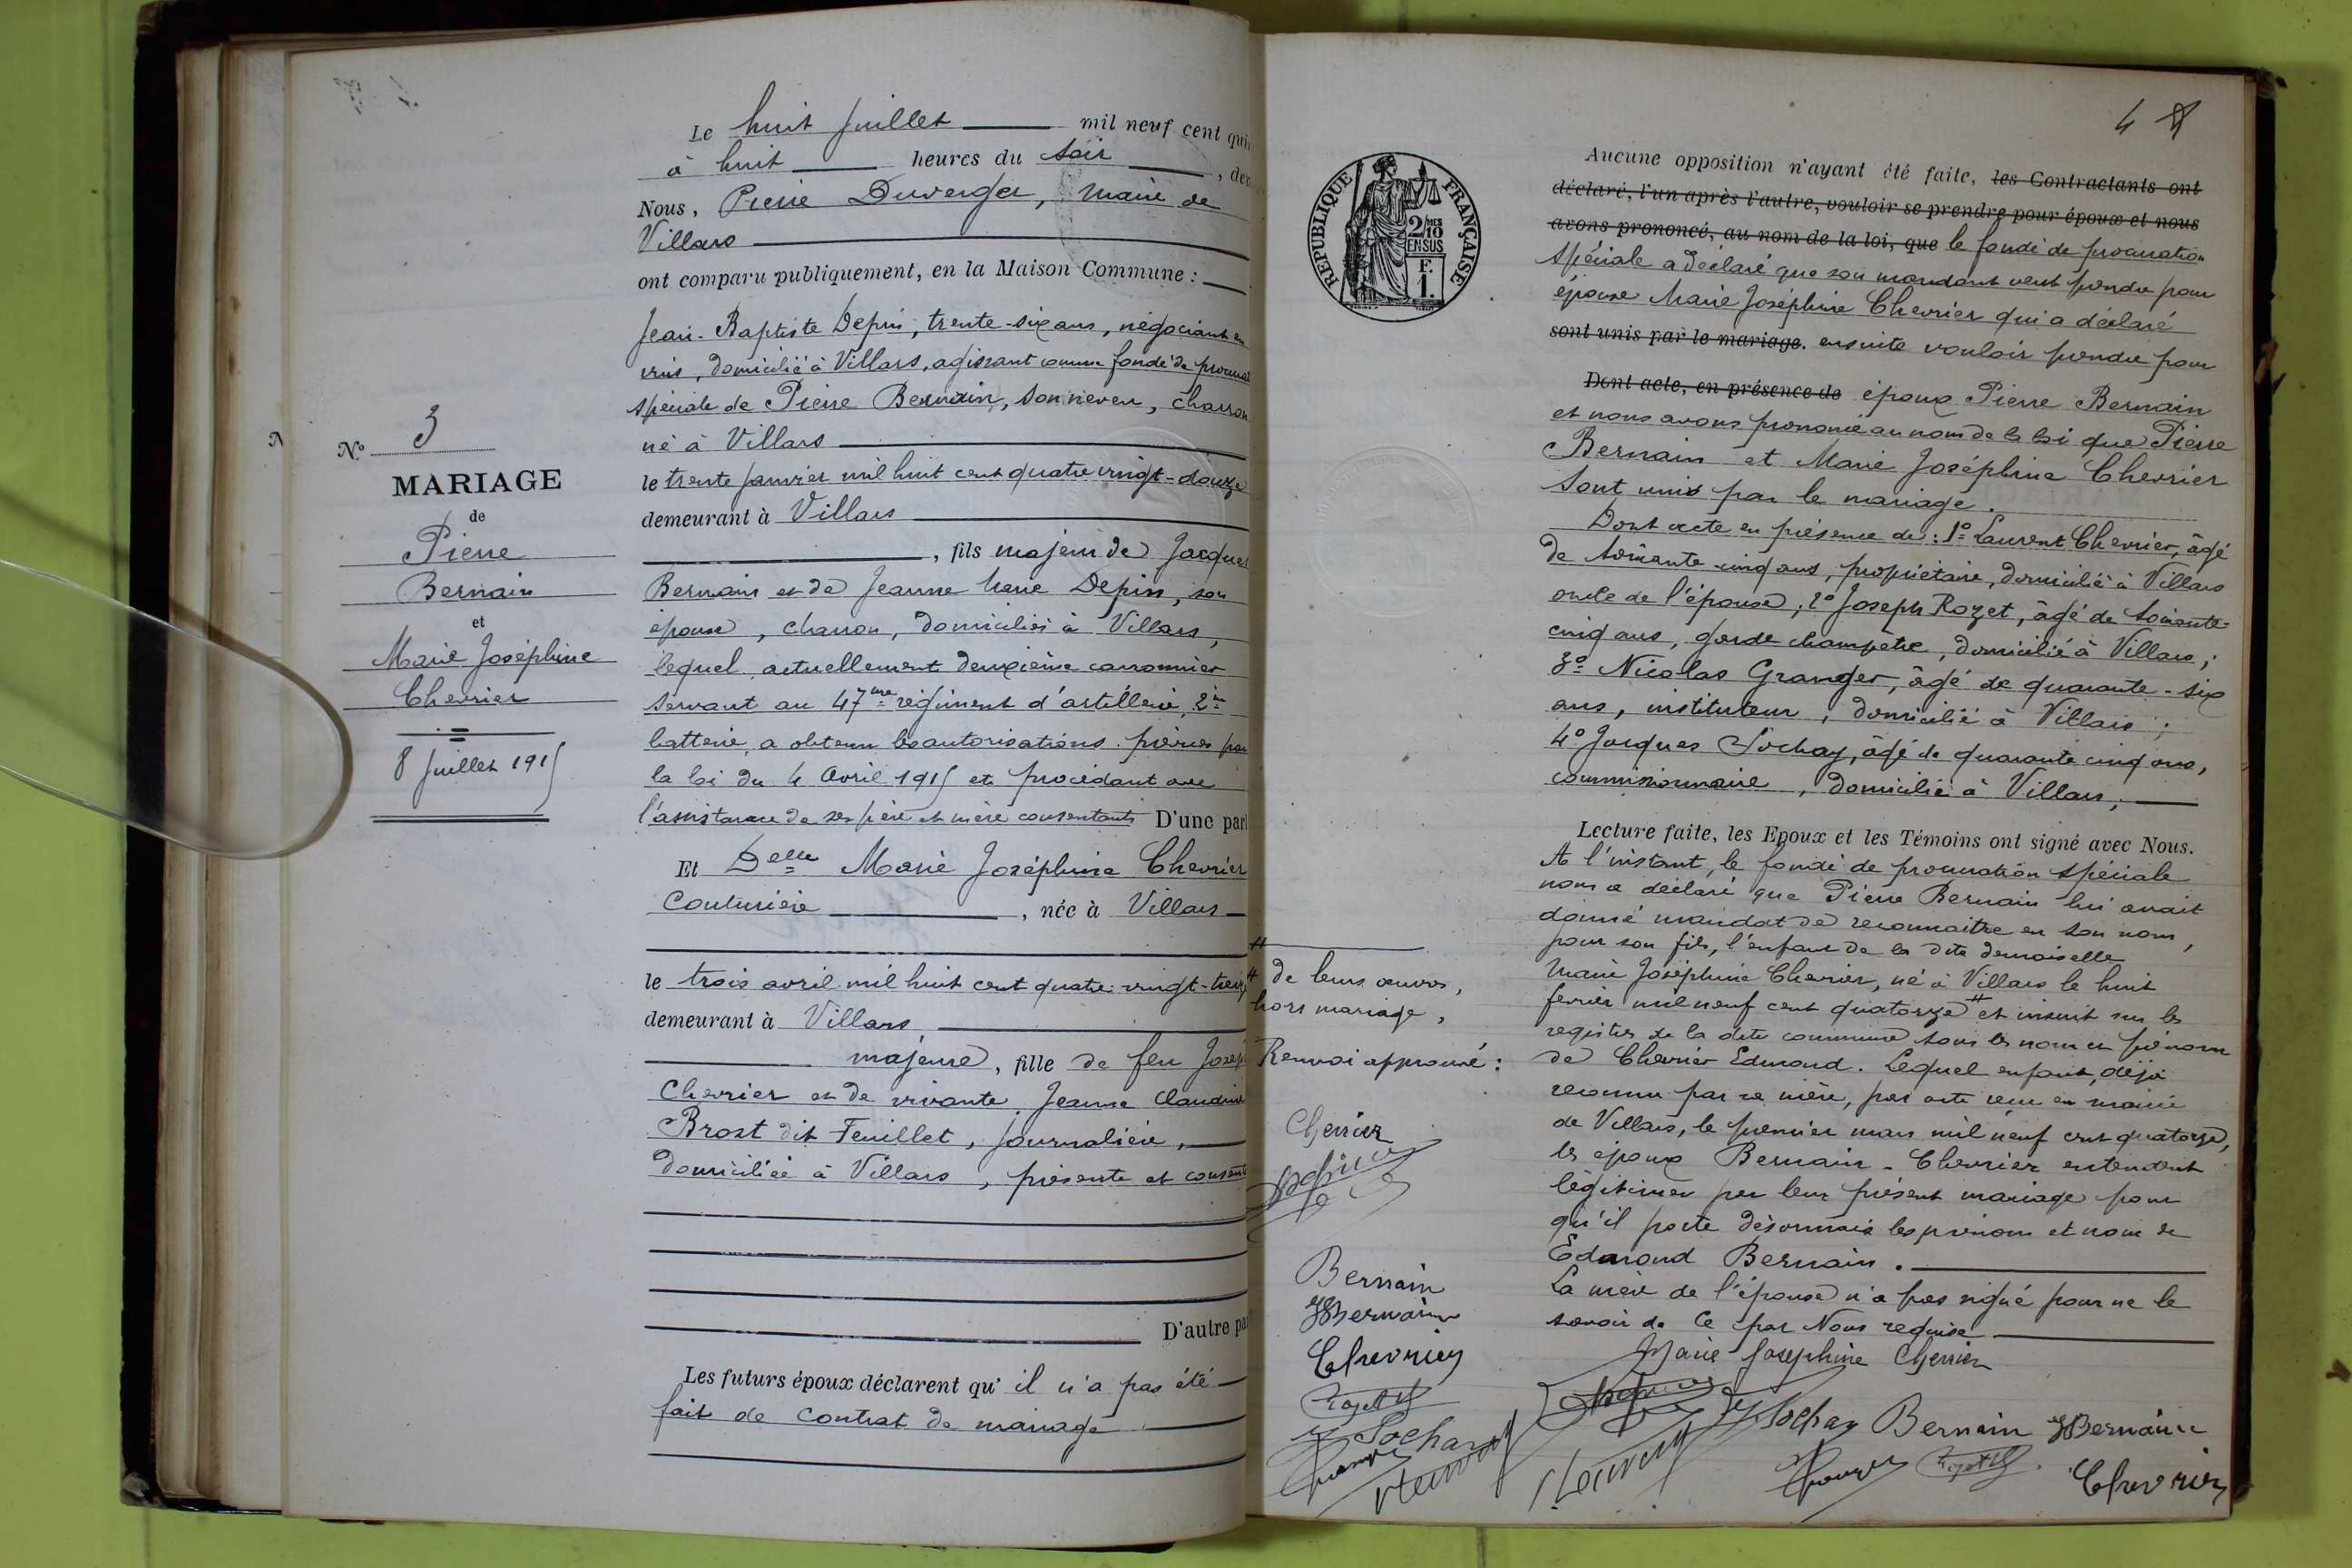 Le huit juillet mil neuf cent qui
à huit heures du soir , de
Nous, Pierre Duverger, Maire de
Villars
ont comparu publiquement, en la Maison Commune :
Jean-Baptiste Depin, trente-six ans, négociant en
vins, domicilié à Villars, agissant comme fondé de procurat
spéciale de Pierre Bernain, son neveu, charron
né à Villars
le trente janvier mil huit cent quatre vingt-douze
demeurant à Villars
, fils majeur de Jacques
Bernain et de Jeanne Marie Depin, son
épouse, charron, domiciliés à Villars,
lequel, actuellement deuxième canonnier
servant au 47me régiment d'artillerie, 2me
batterie, a obtenu les autorisations prévues par
la loi du 4 Avril 1915 et procédant avec
l'assistance de ses père et mère consentants D'une part
Et Delle Marie Joséphine Chevrier
Couturière , née à Villars
le trois avril mil huit cent quatre-vingt-treiz
demeurant à Villars
majeure, fille de feu Josep
Chevrier et de vivante Jeanne Claudine
Brost dit Feuillet, journalière,
domiciliée à Villars, présente et consent
D'autre pa
Les futurs époux déclarent qu'il n'a pas été
fait de contrat de mariage
N
N° 3
MARIAGE
de
Pierre
Bernain
et
Marie Joséphine
Chevrier
8 juillet 1915
4
RÉPUBLIQUE FRANÇAISE
2/10 MES
EN SUS
F.
1.
Aucune opposition n'ayant été faite, les Contractants ont
déclaré, l'un après l'autre, vouloir se prendre pour époux et nous
avons prononcé, au nom de la loi, que le fondé de procuration
spéciale a déclaré que son mandant veut prendre pour
épouse Marie Joséphine Chevrier qui a déclaré
sont unis par le mariage. ensuite vouloir prendre pour
Dont acte, en présence de époux Pierre Bernain
et nous avons prononcé au nom de la loi que Pierre
Bernain et Marie Joséphine Chevrier
sont unis par le mariage.
Dont acte en présence de : 1° Laurent Chevrier, âgé
de soixante-cinq ans, propriétaire, domicilié à Villars
oncle de l'épouse ; 2° Joseph Rozet, âgé de soixante-
cinq ans, garde champêtre, domicilié à Villars ;
3° Nicolas Granger, âgé de quarante-six
ans, instituteur, domicilié à Villars ;
4° Jacques Sochay, âgé de quarante cinq ans,
commissionnaire, domicilié à Villars,
Lecture faite, les Epoux et les Témoins ont signé avec Nous.
A l'instant, le fondé de procuration spéciale
nous a déclaré que Pierre Bernain lui avait
donné mandat de reconnaître en son nom,
pour son fils, l'enfant de la dite demoiselle
Marie Joséphine Chevrier, né à Villars le huit
février mil neuf cent quatorze # et inscrit sur les
registres de la dite commune sous les nom et prénom
de Chevrier Edmond. Lequel enfant, déjà
reconnu par sa mère, par acte reçu en mairie
de Villars, le premier mars mil neuf cent quatorze,
les époux Bernain-Chevrier entendent
légitimer par leur présent mariage pour
qu'il porte désormais les prénom et nom de
Edmond Bernain.
La mère de l'épouse n'a pas signé pour ne le
savoir de ce par Nous requise
# de leurs œuvres,
hors mariage,
Renvoi approuvé :
Chevrier
Depin
Bernain
JBernain
Chevrier
Rozet
Sochay
Granger
Marie Joséphine Chevrier
Depin
Sochay Bernain JBernain
Granger Rozet
Chevrier